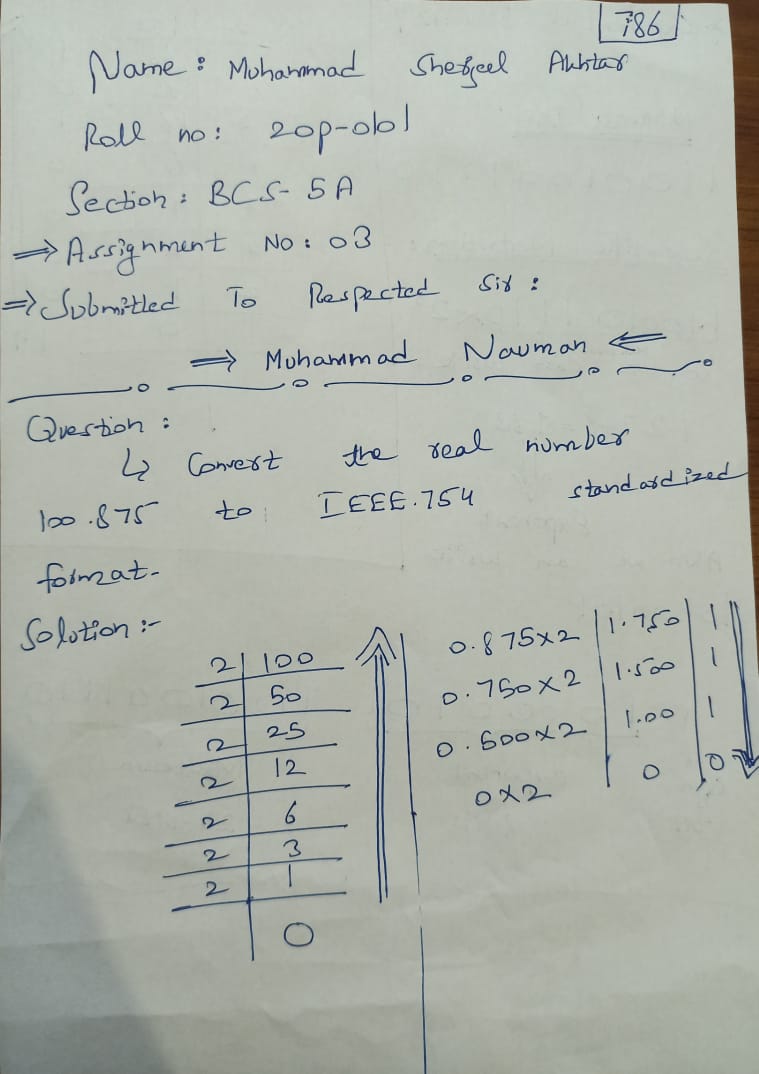 786
Name: Muhammad Sherjeel Akhtar
Roll no: 20p-0101
Section: BCS-5A
⇒ Assignment No: 03
⇒ Submitted To Respected Sir:
⇒ Muhammad Nauman ⇐
Question:
↳ Convert the real number
100.875 to IEEE.754 standardized
format-
Solution:-
2 | 100
2 | 50
2 | 25
2 | 12
2 | 6
2 | 3
2 | 1
0
0.875x2 | 1.750 | 1
0.750x2 | 1.500 | 1
0.500x2 | 1.00 | 1
0x2 | 0 | 0